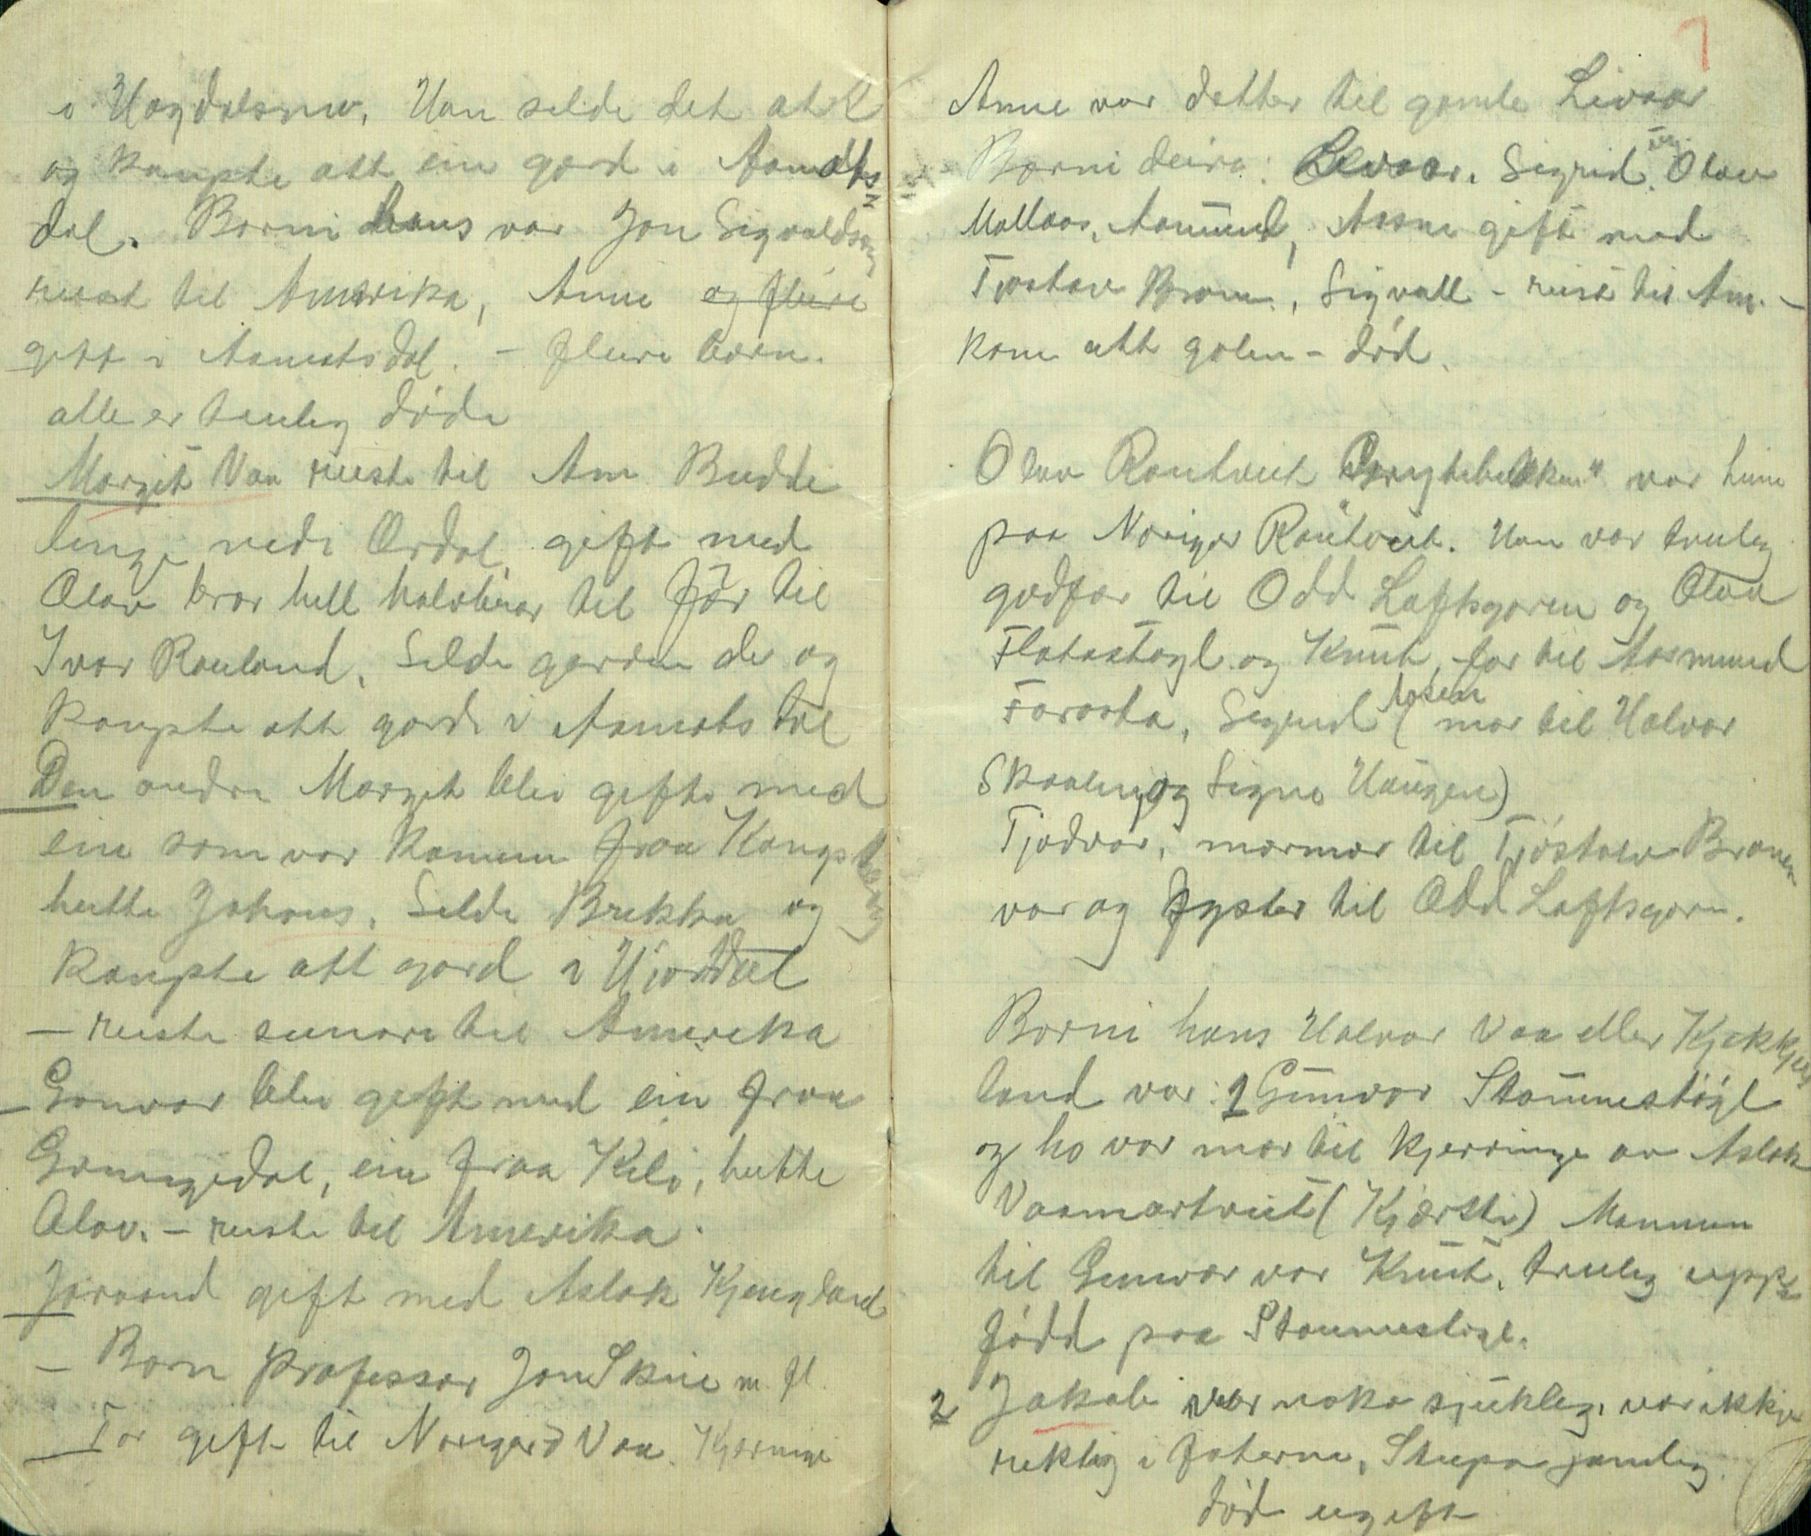 i Høgdalsmo. Han selde det att
og kaupte att ein gard i Aamots
dal. Borni hans var Jon Sigvaldson
reist til Amerika, Anne og fleire
gift i Aamotsdal. – fleire born.
alle er truleg døde
Margit Vaa reiste til Am Budde
lenge nedi Ordal, gift med
Olav bror hell halvbror til far til
Ivar Rauland. Selde garden der og
kaupte att gard i Aamotsdal
Den andre Margit blei gifte med
ein som var komen fraa Kongsberg
heitte Johans. Selde Brekka og
kaupte att gard i Hjordal
– reiste sunare til Amerika
– Gonvor blei gift med ein fraa
Grungedal, ein fraa Kili, heitte
Olav. – reiste til Amerika.
Joraand gift med Aslak Kjengland
– Born professor Jon Skeie m fl.
– Tor gift til Norigard Vaa. Kjerringi
7
Anne var dotter til gamle Livaar
Borni deira: Levaar. Sigrid, Olav
Mallaas, Aamund, Aasne gift med
Tjostav Broen, Sigvall – reist til Am. –
kom att galen – død.
Olav Rautveit var heime
paa Norigar Rautveit. Han var truleg
godfar til Odd Loftsgaren og Olav
Flatastøyl og Knut, far til Aasmund
Faraata, Sigrid (mor til Halvor
Skaalin og Signe Haugen)
Tjodvor, mormor til Tjøstolv Broen
var og syster til Odd Loftsgarn.
Borni hans Halvor Vaa eller Kjekkje
land var: 1 Gunvor Staumestøyl
og ho var mor til kjerringe av Aslak
Vaamartveit (Kjersti) Mannen
til Gunvor var Knut, truleg upp
fødd paa Staumestøyl.
2 Jakob var noko sjukleg, var ikkje
rektig i føterne, Stupa jamleg.
død ugift